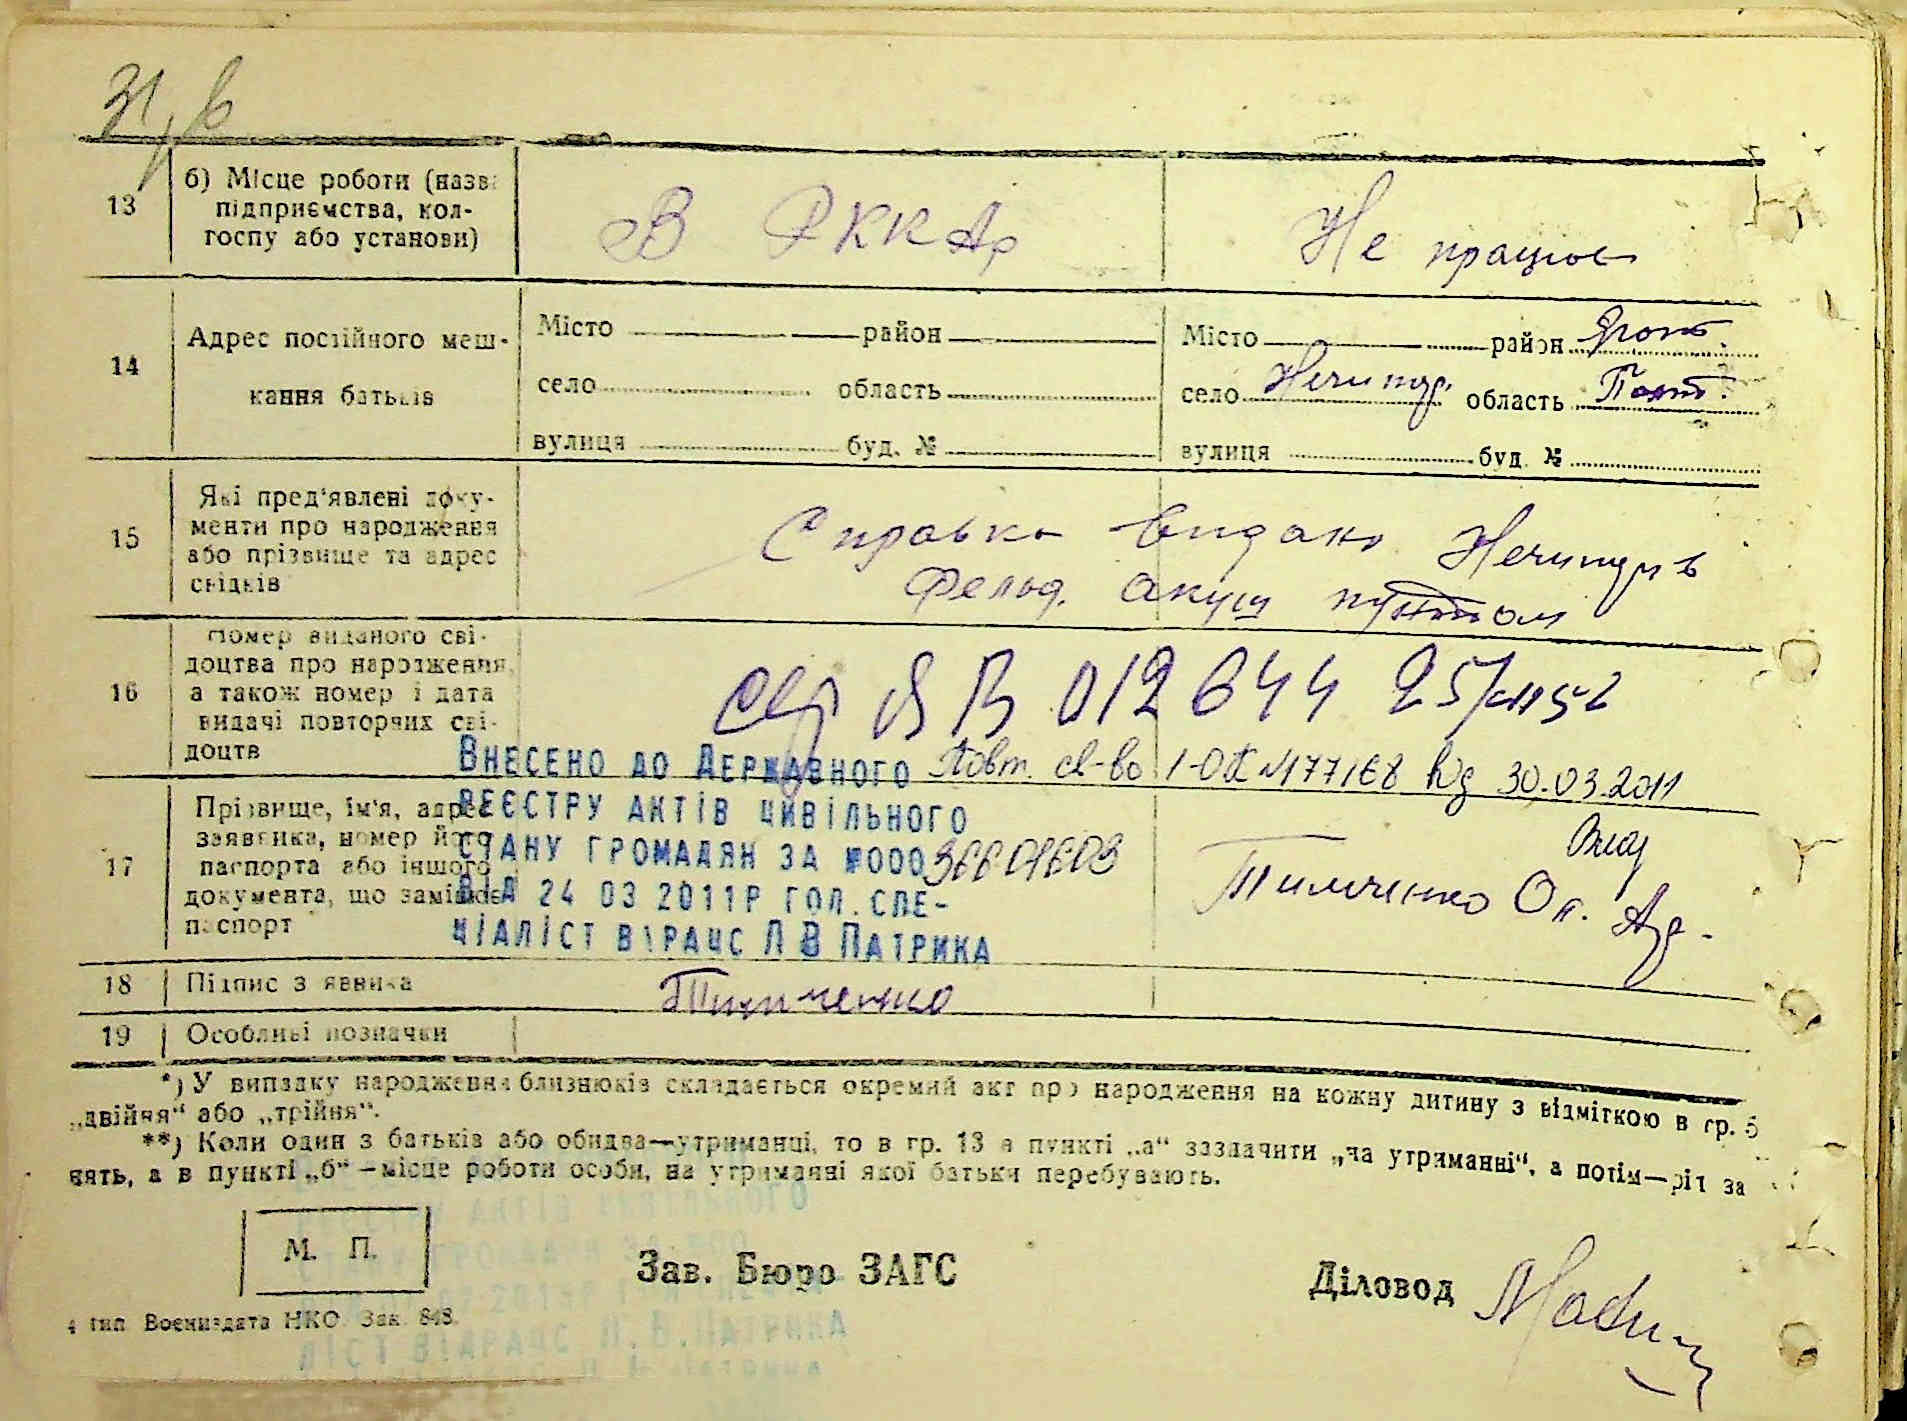 31
13
б) Місце роботи (назва
підприємства, кол-
госпу або установи)
В РККА
Не працює
14
Адрес постійного меш-
кання батьків
Місто район
село область
вулиця буд. №
Місто район Ярот.
село Нечипур. область Полт.
вулиця буд. №
15
Які пред'явлені доку-
менти про народження
або прізвище та адрес
свідків
Справка видана Нечипурів
Фельд. акуш пунктом
16
Номер виданого сві-
доцтва про народження,
а також номер і дата
видачі повторних сві-
доцтв
ЯВ 012644 25/
Повт. св-во 1-ОК №177168 від 30.03.2011
17
Прізвище, ім'я, адрес
заявника, номер його
паспорта або іншого
документа, що замінює
паспорт
Внесено до Державного
реєстру актів цивільного
стану громадян за №00036601603
від 24 03 2011р гол. спе-
ціаліст ВДРАЦС Л В Патрика
Тимченко Ол.
18
Підпис заявника
Тимченко
19
Особливі позначки
*) У випадку народження близнюків складається окремий акт про народження на кожну дитину з відміткою в гр. 5
„двійня“ або „трійня“.
**) Коли один з батьків або обидва—утриманці, то в гр. 13 в пункті „а“ зазначити „на утриманні“, а потім—рід за
нять, а в пункті „б“ —місце роботи особи, на утриманні якої батьки перебувають.
М. П.
Зав. Бюро ЗАГС
Діловод
4 тип. Воениздата НКО Зак. 848.